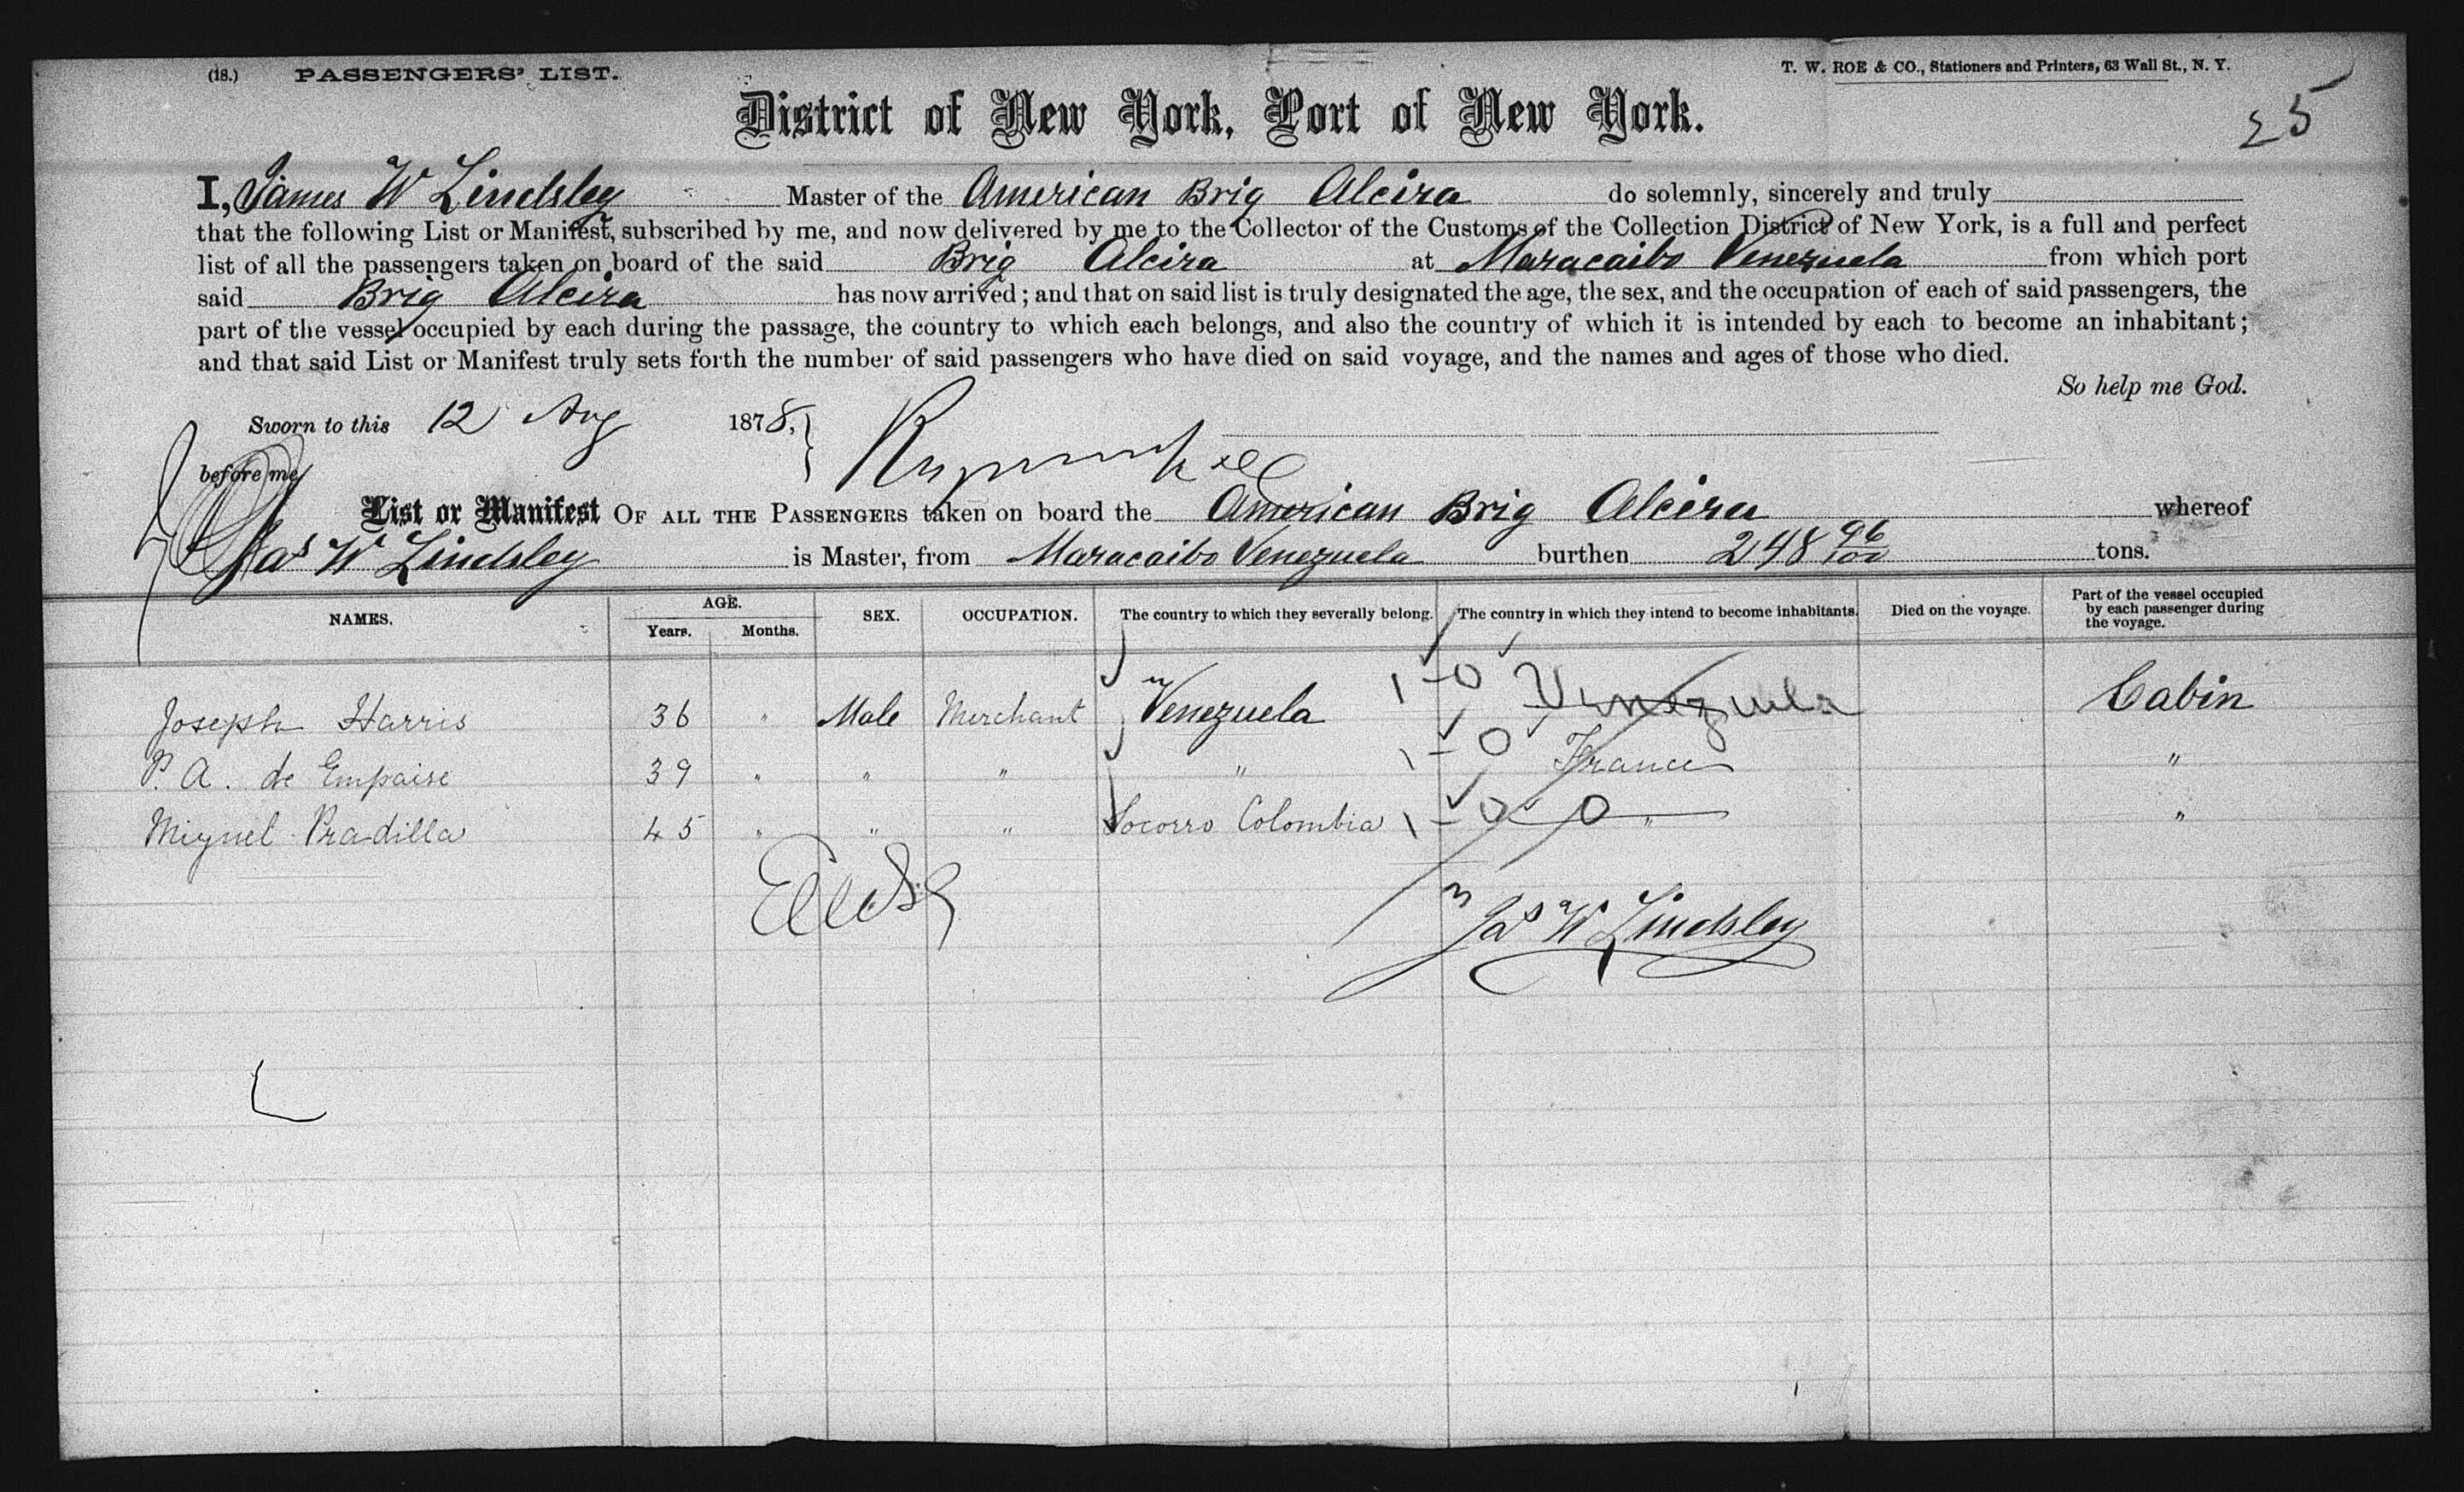 (18.) PASSENGERS' LIST.
T. W. ROE & CO., Stationers and Printers, 63 Wall St., N. Y.
25
District of New York, Port of New York.
I, James W Lindsley Master of the American Brig Alcira do solemnly, sincerely and truly
that the following List or Manifest, subscribed by me, and now delivered by me to the Collector of the Customs of the Collection District of New York, is a full and perfect
list of all the passengers taken on board of the said Brig Alcira at Maracaibo Venezuela from which port
said Brig Alcira has now arrived; and that on said list is truly designated the age, the sex, and the occupation of each of said passengers, the
part of the vessel occupied by each during the passage, the country to which each belongs, and also the country of which it is intended by each to become an inhabitant;
and that said List or Manifest truly sets forth the number of said passengers who have died on said voyage, and the names and ages of those who died.
So help me God.
Sworn to this 12 Aug 1878,
before me
List or Manifest OF ALL THE PASSENGERS taken on board the American Brig Alcira whereof
Jas W Lindsley is Master, from Maracaibo Venezuela burthen 248 96/100 tons.
NAMES. AGE. Years. Months. SEX. OCCUPATION. The country to which they severally belong. The country in which they intend to become inhabitants. Died on the voyage. Part of the vessel occupied by each passenger during the voyage.
Joseph Harris 36 " Male Merchant Venezuela 1-0 Venezuela Cabin
P. A. de Empaise 39 " " " " 1-0 France "
Miguel Pradilla 45 " " " Socorro Colombia 1-0 0 " "
Jas W Lindsley